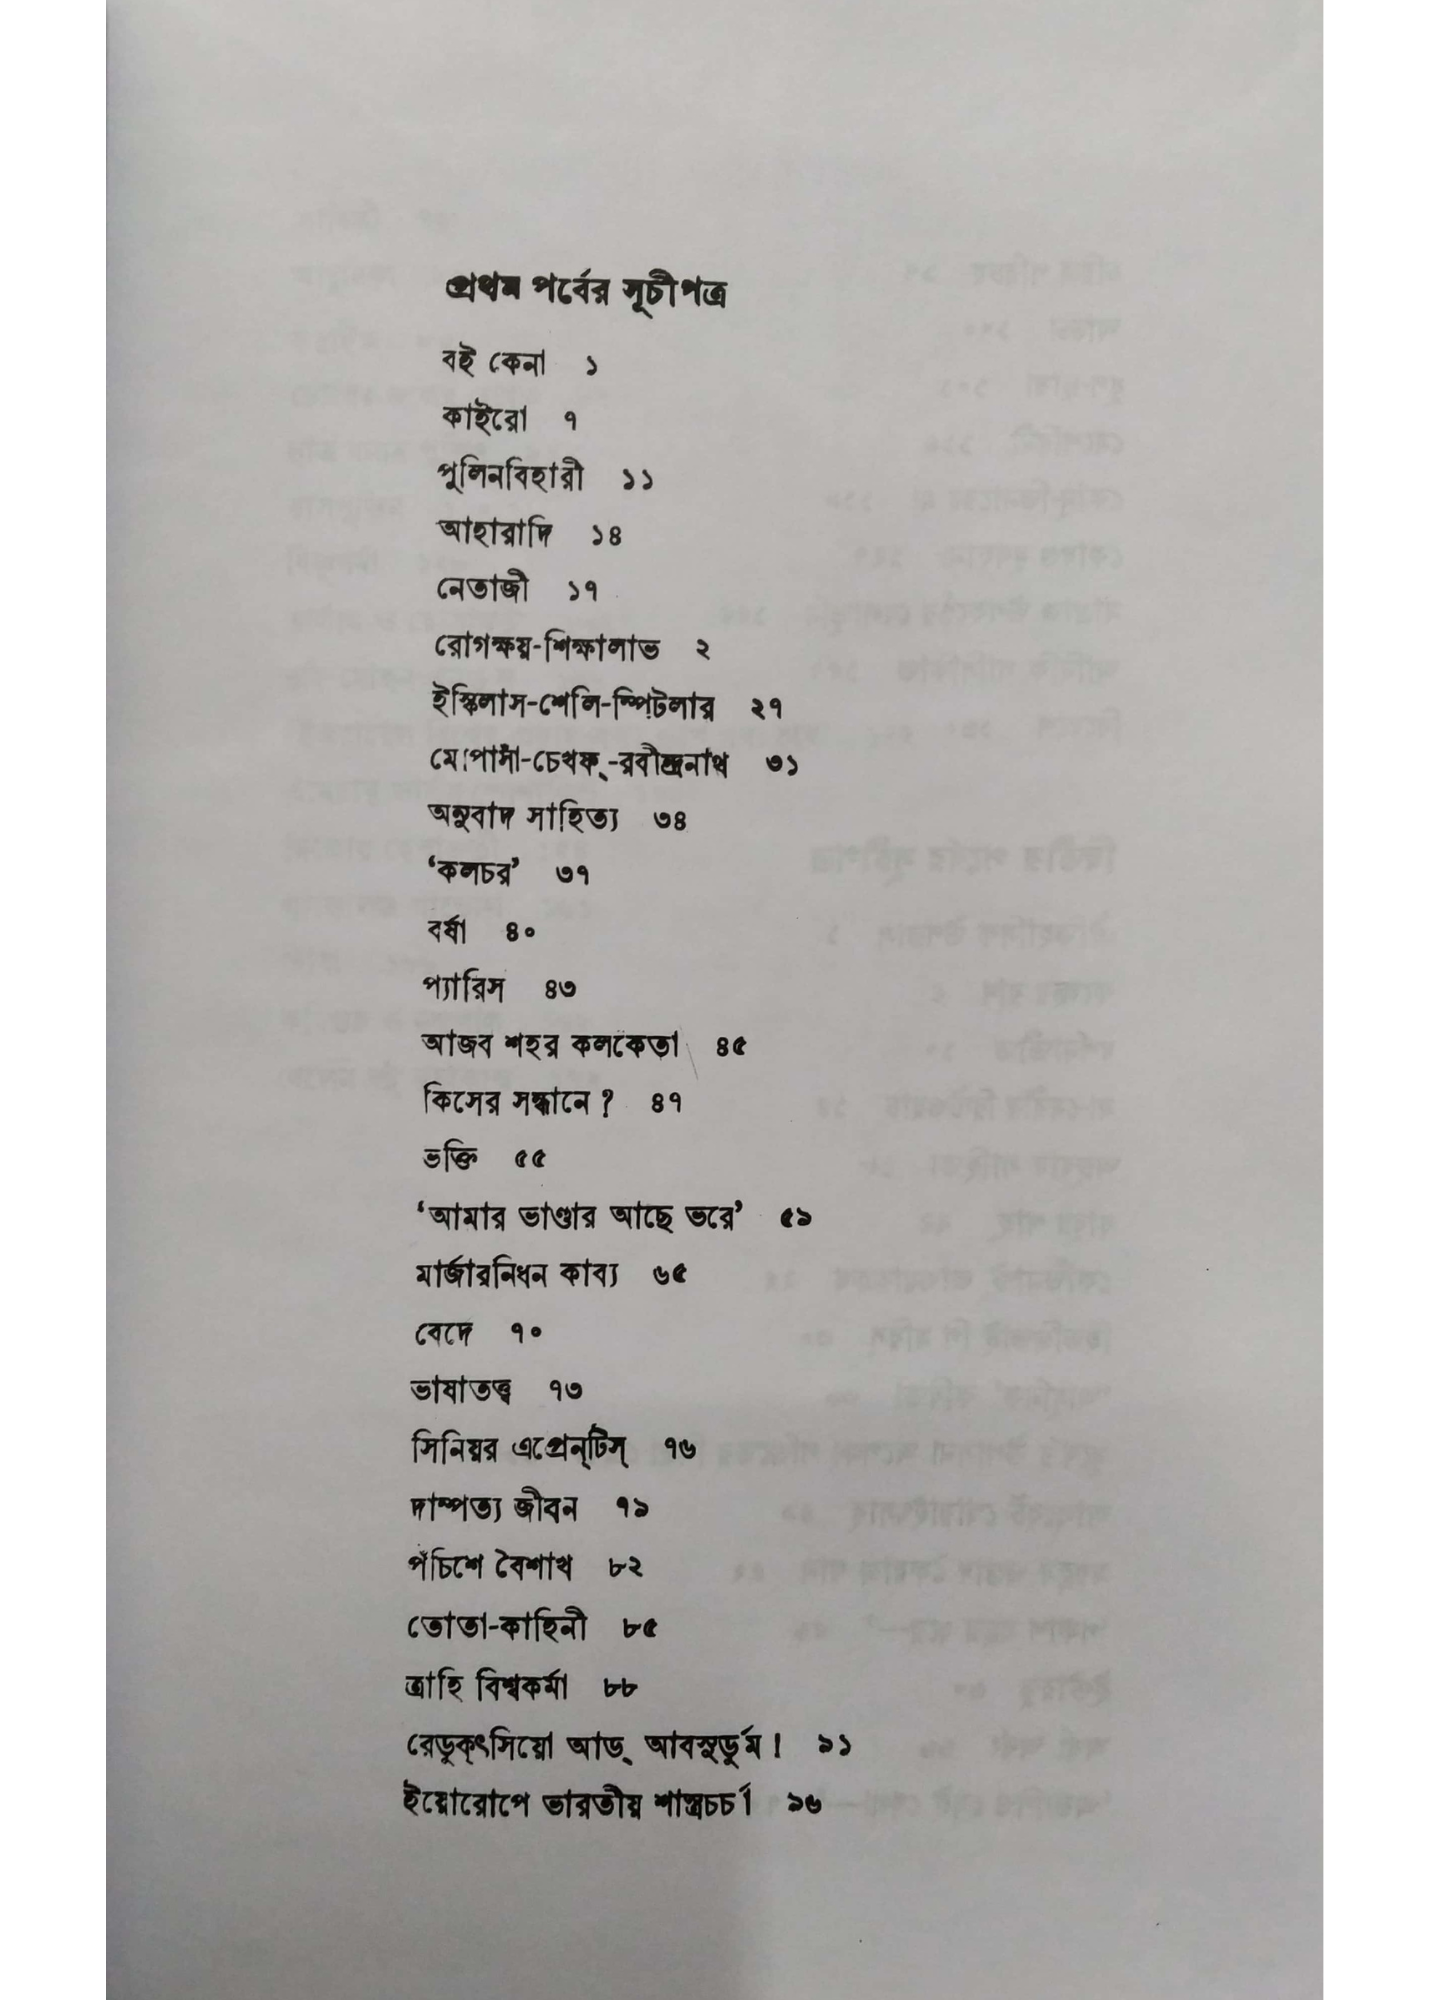 প্রথম পর্বের সূচীপত্র
বই কেনা ১
কাইরো ৭
পুলিনবিহারী ১১
আহারাদি ১৪
নেতাজী ১৭
রোগক্ষয়-শিক্ষালাভ ২
ইস্কিলাস-শেলি-স্পিটলার ২৭
মোপাসাঁ-চেখফ্-রবীন্দ্রনাথ ৩১
অনুবাদ সাহিত্য ৩৪
‘কলচর’ ৩৭
বর্ষা ৪০
প্যারিস ৪৩
আজব শহর কলকেতা ৪৫
কিসের সন্ধানে ? ৪৭
ভক্তি ৫৫
‘আমার ভাণ্ডার আছে ভরে’ ৫৯
মার্জারনিধন কাব্য ৬৫
বেদে ৭০
ভাষাতত্ত্ব ৭৩
সিনিয়র এপ্রেন্‌টিস্ ৭৬
দাম্পত্য জীবন ৭৯
পঁচিশে বৈশাখ ৮২
তোতা-কাহিনী ৮৫
ত্রাহি বিশ্বকর্মা ৮৮
রেডুক্‌ৎসিয়ো আড্ আবসুর্ডুম । ৯১
ইয়োরোপে ভারতীয় শাস্ত্রচর্চা ৯৬